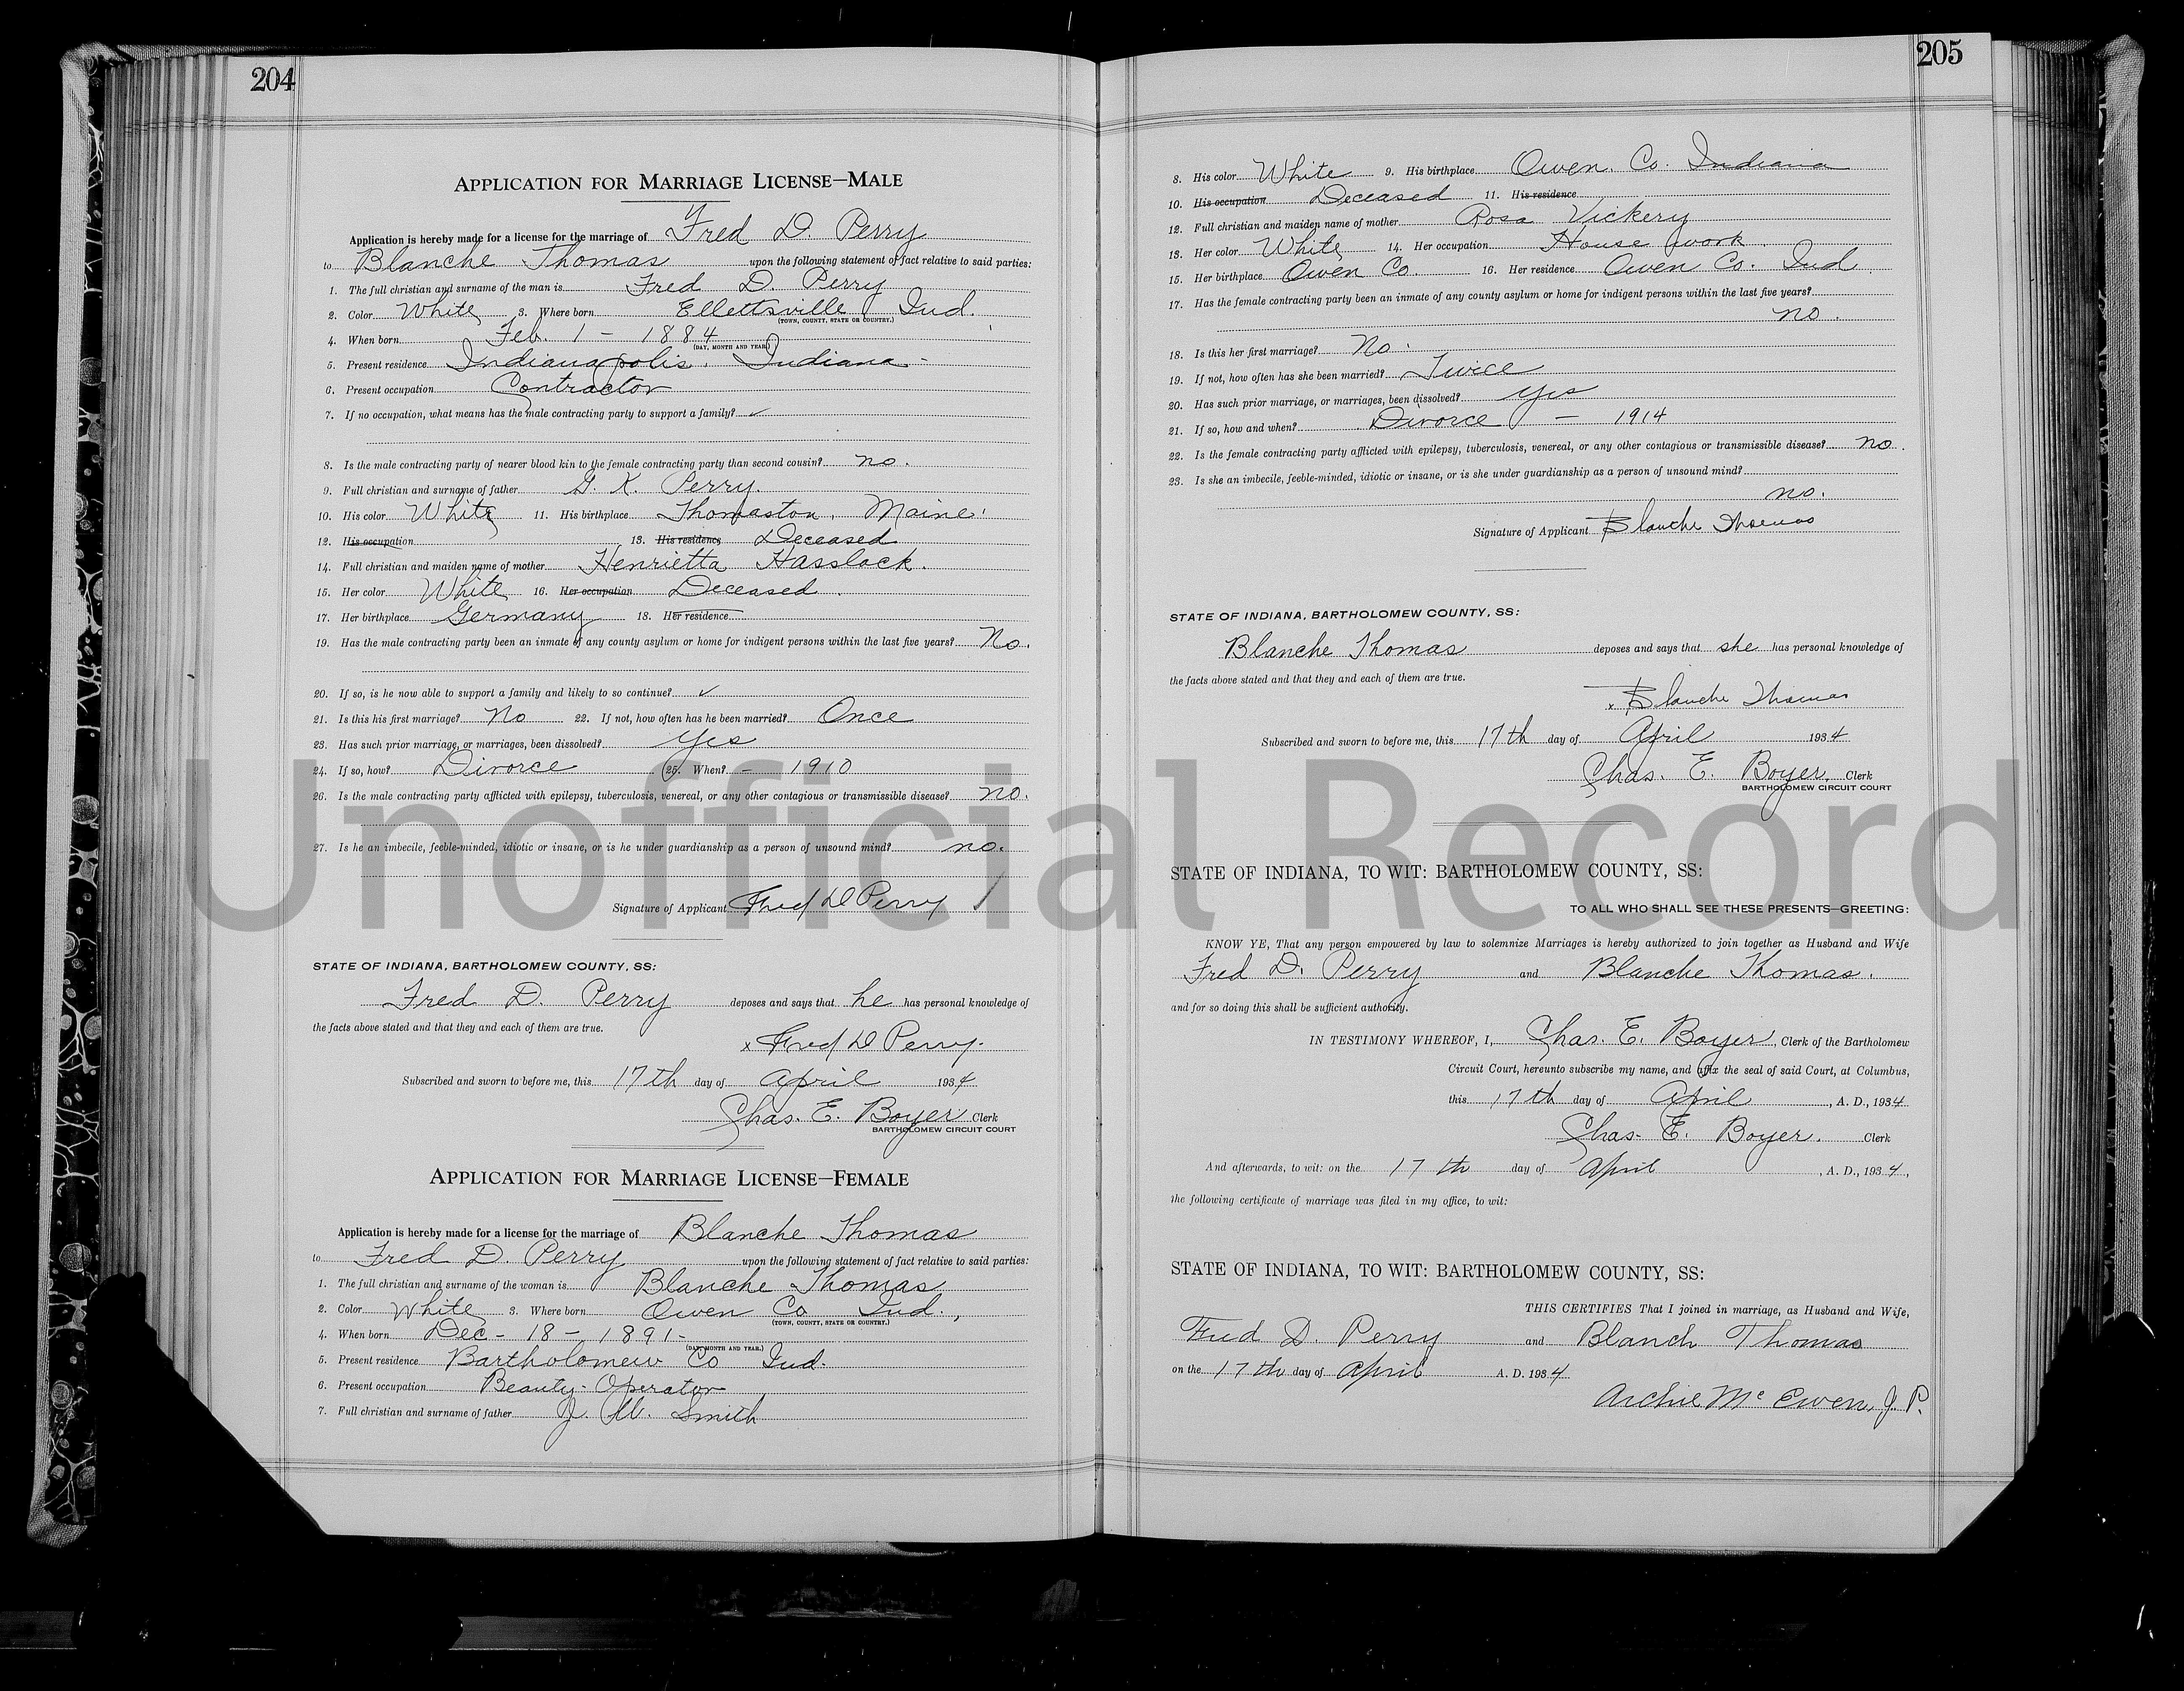 204
APPLICATION FOR MARRIAGE LICENSE—MALE
Application is hereby made for a license for the marriage of Fred D. Perry
to Blanche Thomas upon the following statement of fact relative to said parties:
1. The full christian and surname of the man is Fred D. Perry
2. Color White 3. Where born Ellettsville Ind.
(TOWN, COUNTY, STATE OR COUNTRY.)
4. When born Feb. 1 - 1884
(DAY, MONTH AND YEAR.)
5. Present residence Indianapolis, Indiana -
6. Present occupation Contractor
7. If no occupation, what means has the male contracting party to support a family? ✓
8. Is the male contracting party of nearer blood kin to the female contracting party than second cousin? no.
9. Full christian and surname of father G. K. Perry.
10. His color White 11. His birthplace Thomaston, Maine.
12. His occupation 13. His residence Deceased
14. Full christian and maiden name of mother Henrietta Hasslock.
15. Her color White 16. Her occupation Deceased.
17. Her birthplace Germany 18. Her residence
19. Has the male contracting party been an inmate of any county asylum or home for indigent persons within the last five years? No.
20. If so, is he now able to support a family and likely to so continue? ✓
21. Is this his first marriage? No 22. If not, how often has he been married? Once
23. Has such prior marriage, or marriages, been dissolved? Yes
24. If so, how? Divorce 25. When? - 1910
26. Is the male contracting party afflicted with epilepsy, tuberculosis, venereal, or any other contagious or transmissible disease? no.
27. Is he an imbecile, feeble-minded, idiotic or insane, or is he under guardianship as a person of unsound mind? no.
Signature of Applicant Fred D Perry
STATE OF INDIANA, BARTHOLOMEW COUNTY, SS:
Fred D. Perry deposes and says that he has personal knowledge of
the facts above stated and that they and each of them are true.
x Fred D Perry.
Subscribed and sworn to before me, this 17th day of April 1934
Chas. E. Boyer Clerk
BARTHOLOMEW CIRCUIT COURT
APPLICATION FOR MARRIAGE LICENSE—FEMALE
Application is hereby made for a license for the marriage of Blanche Thomas
to Fred D. Perry upon the following statement of fact relative to said parties:
1. The full christian and surname of the woman is Blanche Thomas
2. Color White 3. Where born Owen Co Ind.,
(TOWN, COUNTY, STATE OR COUNTRY.)
4. When born Dec - 18 - 1891 -
(DAY, MONTH AND YEAR.)
5. Present residence Bartholomew Co Ind.
6. Present occupation Beauty-Operator
7. Full christian and surname of father J. W. Smith
205
8. His color White 9. His birthplace Owen. Co. Indiana
10. His occupation Deceased 11. His residence
12. Full christian and maiden name of mother Rosa Vickery
13. Her color White 14. Her occupation House work.
15. Her birthplace Owen Co. 16. Her residence Owen Co. Ind.
17. Has the female contracting party been an inmate of any county asylum or home for indigent persons within the last five years?
no.
18. Is this her first marriage? No.
19. If not, how often has she been married? Twice
20. Has such prior marriage, or marriages, been dissolved? Yes
21. If so, how and when? Divorce - 1914
22. Is the female contracting party afflicted with epilepsy, tuberculosis, venereal, or any other contagious or transmissible disease? no.
23. Is she an imbecile, feeble-minded, idiotic or insane, or is she under guardianship as a person of unsound mind?
no.
Signature of Applicant Blanche Thomas
STATE OF INDIANA, BARTHOLOMEW COUNTY, SS:
Blanche Thomas deposes and says that she has personal knowledge of
the facts above stated and that they and each of them are true.
x Blanche Thomas
Subscribed and sworn to before me, this 17th day of April 1934
Chas. E. Boyer. Clerk
BARTHOLOMEW CIRCUIT COURT
STATE OF INDIANA, TO WIT: BARTHOLOMEW COUNTY, SS:
TO ALL WHO SHALL SEE THESE PRESENTS—GREETING:
KNOW YE, That any person empowered by law to solemnize Marriages is hereby authorized to join together as Husband and Wife
Fred D. Perry and Blanche Thomas.
and for so doing this shall be sufficient authority.
IN TESTIMONY WHEREOF, I, Chas. E. Boyer, Clerk of the Bartholomew
Circuit Court, hereunto subscribe my name, and affix the seal of said Court, at Columbus,
this 17th day of April, A. D., 1934
Chas. E. Boyer. Clerk
And afterwards, to wit: on the 17th day of April, A. D., 1934,
the following certificate of marriage was filed in my office, to wit:
STATE OF INDIANA, TO WIT: BARTHOLOMEW COUNTY, SS:
THIS CERTIFIES That I joined in marriage, as Husband and Wife,
Fred D. Perry and Blanch Thomas
on the 17th day of April A. D. 1934
Archie McEwen, J. P.
Unofficial Record